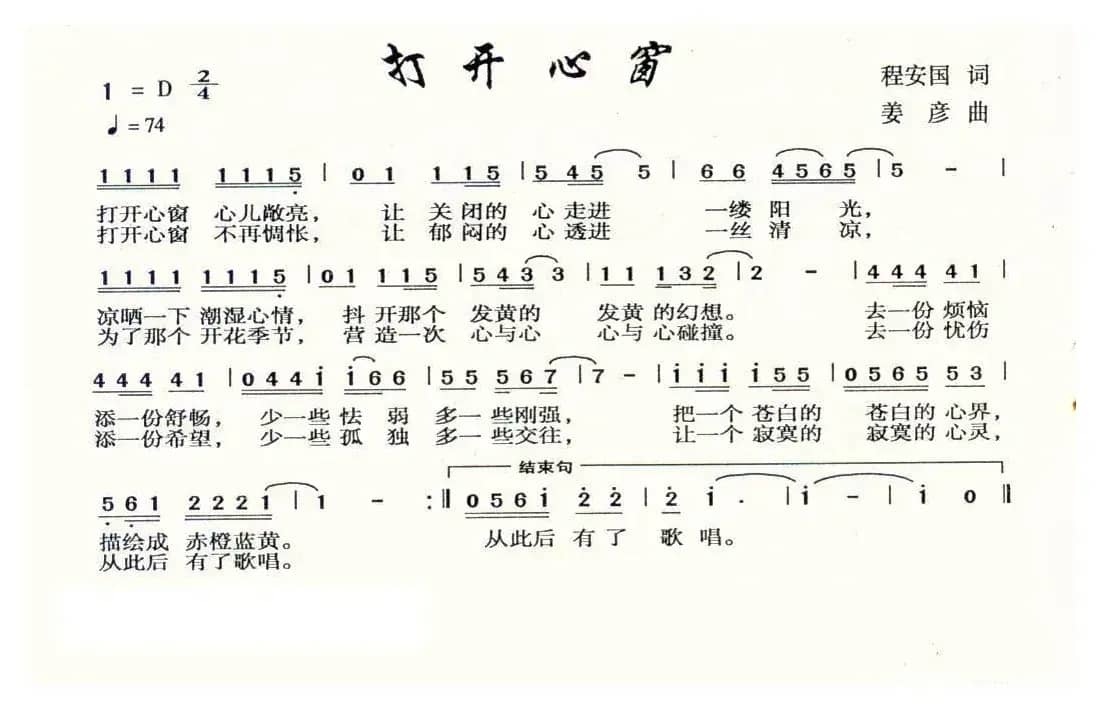 打开心窗
1 = D 2/4
程安国 词
♩=74
姜 彦 曲
1 1 1 1 1 1 1 5 | 0 1 1 1 5 | 5 4 5 5 | 6 6 4 5 6 5 | 5 - |
打开心窗 心儿敞亮, 让 关 闭的 心 走进 一缕 阳 光,
打开心窗 不再惆怅, 让 郁 闷的 心 透进 一丝 清 凉,
1 1 1 1 1 1 1 5 | 0 1 1 1 5 | 5 4 3 3 | 1 1 1 3 2 | 2 - | 4 4 4 4 1 |
凉晒一下 潮湿心情, 抖 开那个 发黄的 发黄 的幻想。 去一份 烦恼
为了那个 开花季节, 营 造一次 心与心 心与 心碰撞。 去一份 忧伤
4 4 4 4 1 | 0 4 4 i i 6 6 | 5 5 5 6 7 | 7 - | i i i i 5 5 | 0 5 6 5 5 3 |
添一份舒畅, 少一些 怯 弱 多一 些刚强, 把一个 苍白的 苍白的 心界,
添一份希望, 少一些 孤 独 多一 些交往, 让一个 寂寞的 寂寞的 心灵,
5 6 1 2 2 2 1 | 1 - :‖ 结束句 0 5 6 i 2 2 | 2 i . | i - | i 0 ‖
描绘成 赤橙蓝黄。 从此后 有 了 歌 唱。
从此后 有了歌唱。